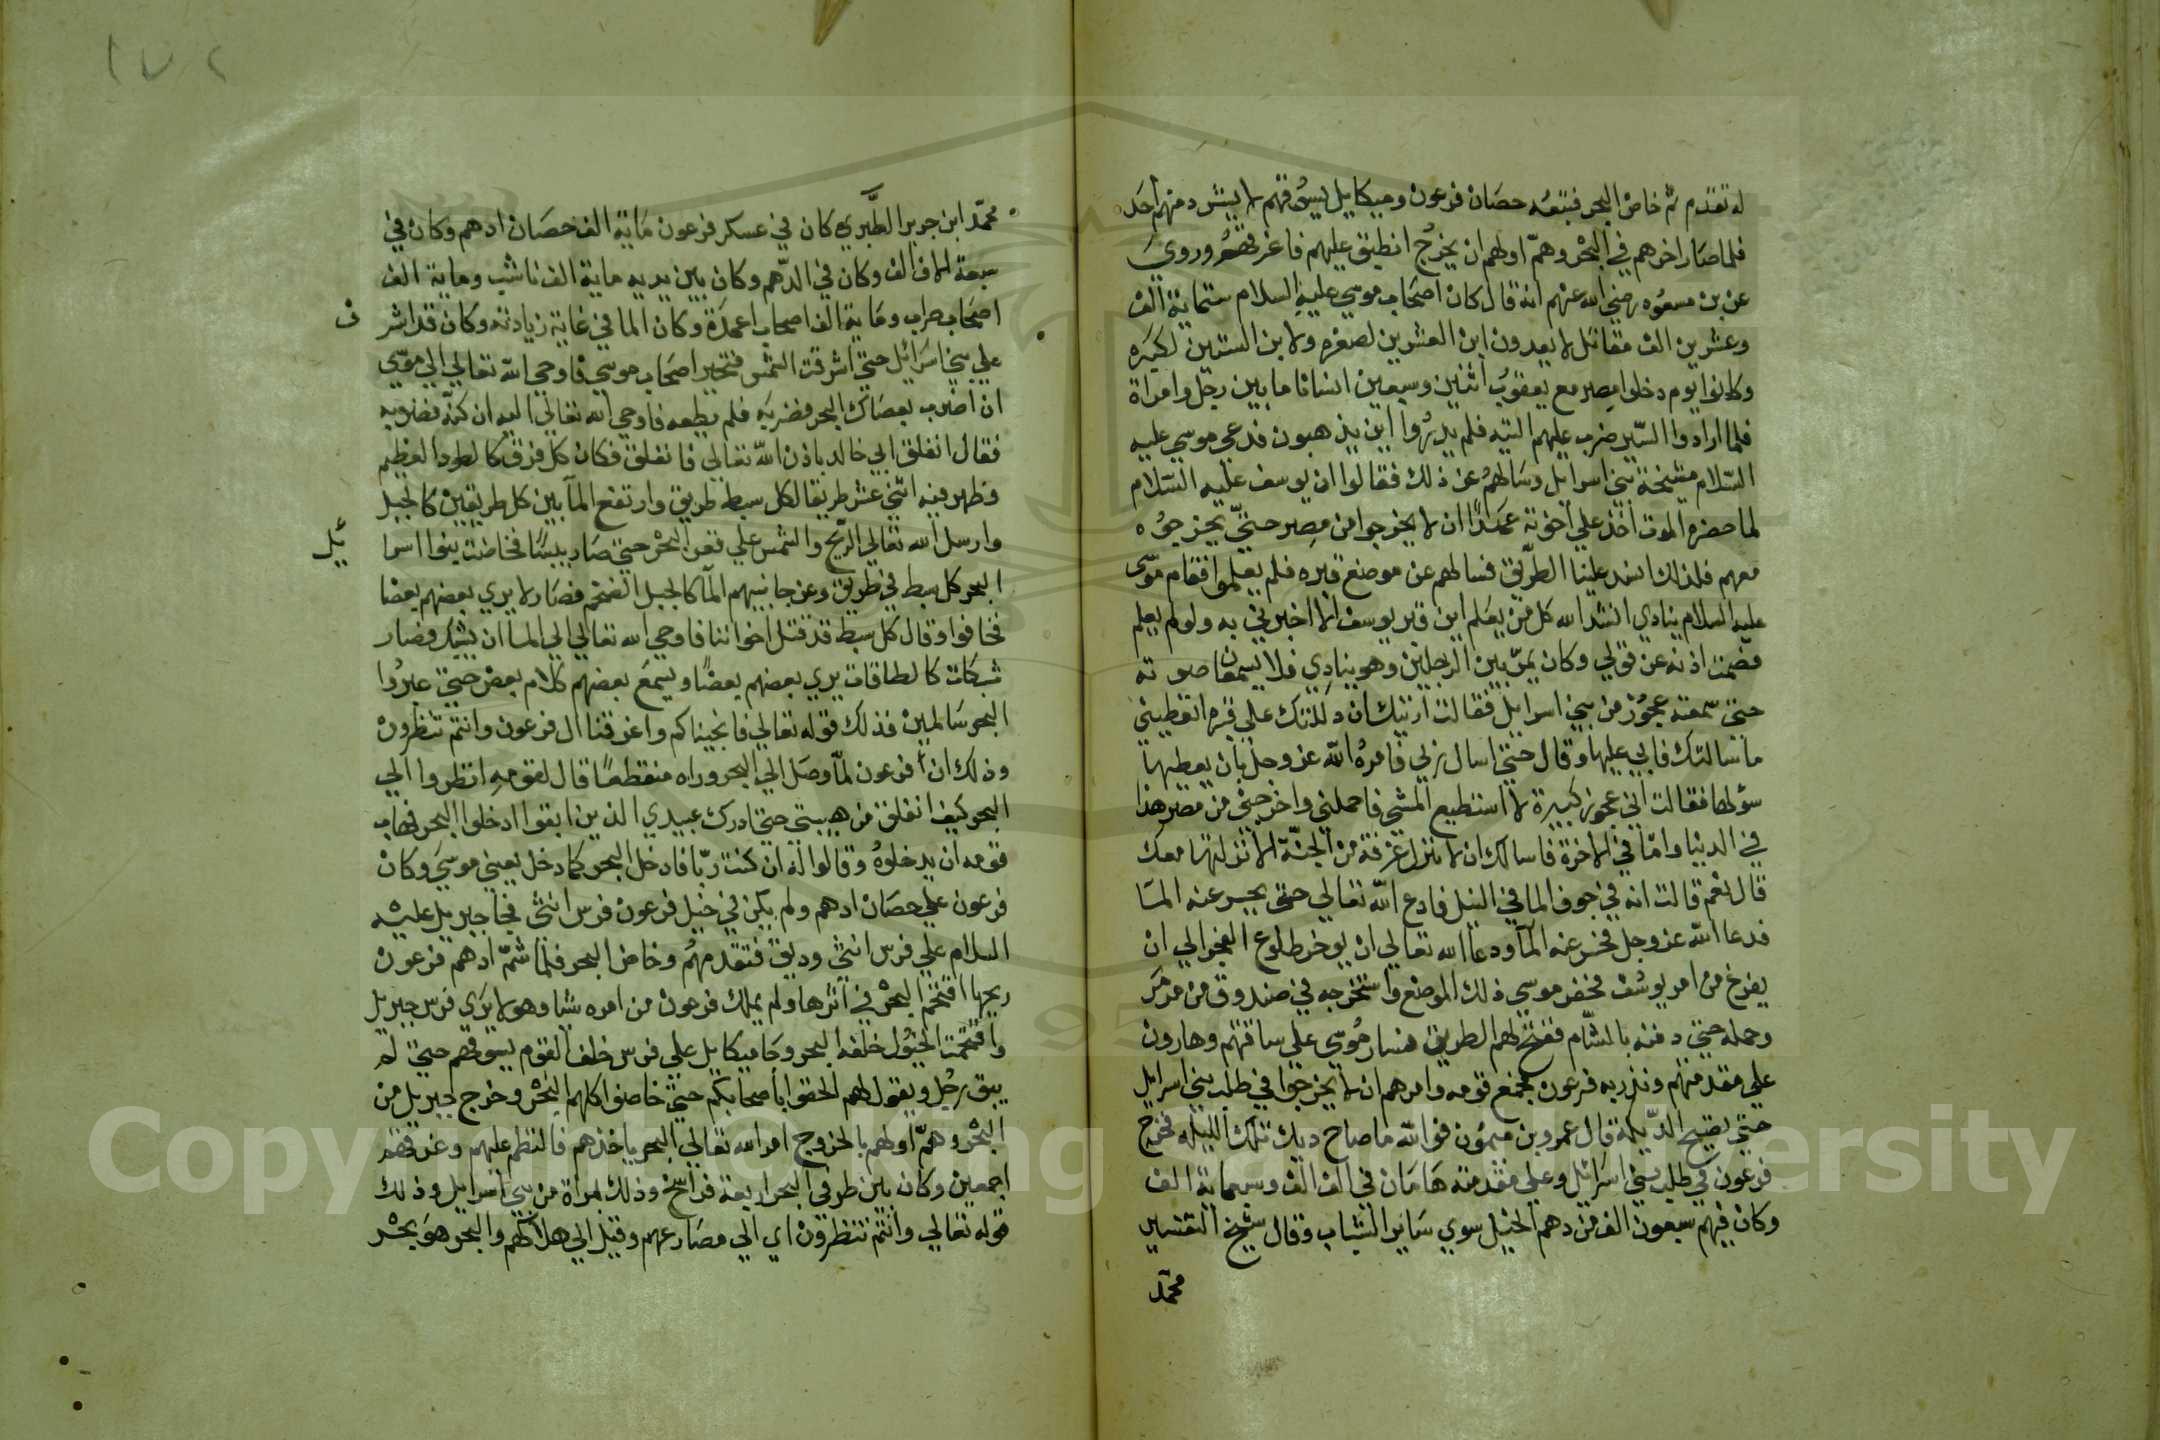 له تقدم ثم خاض البحر فتبعه حصان فرعون وميكايل يسوقهم لا يشرد منهم احد
فلما صار اخرهم في البحر وهمّ اولهم ان يخرج انطبق عليهم فاغرقهم وروي
عن بن مسعود رضي الله عنهم انه قال كان اصحاب موسي عليه السلام ستماية الف
وعشرين الف مقاتل لا يعدون ابن العشرين لصغره ولا بن الستين لكبره
وكانوا يوم دخلوا مصر مع يعقوب اثنين وسبعين انسانا ما بين رجل وامراة
فلما ارادوا السير ضرب عليهم التيه فلم يدروا اين يذهبون فدعي موسي عليه
السلام مشيخة بني اسرايل وسالهم عن ذلك فقالوا ان يوسف عليه السلام
لما حضره الموت اخذ علي اخوته عهدا ان لا يخرجوا من مصر حتي يخرجوه
معهم فلذلك انسد علينا الطريق فسالهم عن موضع قبره فلم يعلموا فقام موسي
عليه السلام ينادي انشد الله كل من يعلم اين قبر يوسف الا اخبرني به ولو لم يعلم
فصمت اذنه عن قولي وكان يمر بين الرجلين وهو ينادي فلا يسمعان صوته
حتي سمعته عجوز من بني اسرايل فقالت ارايتك ان دللتك علي قبره اتعطيني
ما سالتك فابي عليها وقال حتي اسال ربي فامره الله عز وجل بان يعطيها
سؤلها فقالت اني عجوز كبيرة لا استطيع المشي فاحملني واخرجني من مصر هذا
في الدنيا واما في الاخرة فاسالك ان لا تنزل غرفة من الجنة الا نزلتها معك
قال نعم قالت انه في جوف الما في النيل فادع الله تعالي حتي يحسر عنه الما
فدعا الله عز وجل فحسر عنه المآ ودعا الله تعالي ان يوخر طلوع الفجر الي ان
يفرغ من امر يوسف فحفر موسي ذلك الموضع واستخرجه في صندوق من مرمر
وحمله حتي دفنه بالشام ففتح لهم الطريق فسار موسي علي ساقتهم وهارون
علي مقدمتهم ونذر به فرعون فجمع قومه وامرهم ان لا يخرجوا في طلب بني اسرايل
حتي يصيح الديكة قال عمرو بن ميمون فوالله ما صاح ديك تلك الليلة فخرج
فرعون في طلب بني اسرائل وعلي مقدمته هامان في الف الف وسبعماية الف
وكان فيهم سبعون الف من دهم الخيل سوي ساير الشيات وقال شيخ التفسير
محمد
١٧٢
محمد ابن جرير الطبري كان في عسكر فرعون ماية الف حصان ادهم وكان في
سبعة الاف الف وكان في الدهم وكان بين يديه ماية الف ناشب وماية الف
اصحاب حراب وماية الف اصحاب اعمدة وكان الما في غاية زيادته وكان قد اشر
ف
علي بني اسرائل حتي اشرقت الشمس فتحير اصحاب موسي فاوحي الله تعالي الي موسي
ان اضرب بعصاك البحر فضربه فلم يطعه فاوحي الله تعالي اليه ان كنه فضربه
فقال انفلق ابي خالد باذن الله تعالي فانفلق فكان كل فرق كالطود العظيم
وظهر فيه اثني عشر طريقا لكل سبط طريق وارتفع المآ بين كل طريقين كالجبل
وارسل الله تعالي الريح والشمس علي قعر البحر حتي صار يبسا فخاضت بنوا اسرا
ئيل
البحر كل سبط في طريق وعن جانبيهم المآ كالجبل الضخم فصار لا يري بعضهم بعضا
فخافوا وقال كل سبط قد قتل اخواننا فاوحي الله تعالي الي الما ان يشبك فصار
شبكات كالطاقات يري بعضهم بعضا ويسمع بعضهم كلام بعض حتي عبروا
البحر سالمين فذلك قوله تعالي فانجيناكم واغرقنا ال فرعون وانتم تنظرون
وذلك ان فرعون لما وصل الي البحر وراه منقطعا قال لقومه انظروا الي
البحر كيف انفلق من هيبتي حتي ادرك عبيدي الذين ابقوا ادخلوا البحر فهاب
قومه ان يدخلوه وقالوا له ان كنت ربا فادخل البحر كما دخل يعني موسي وكان
فرعون علي حصان ادهم ولم يكن في خيل فرعون فرس انثي فجا جبريل عليه
السلام علي فرس انثي وديق فتقدمهم وخاض البحر فلما شم ادهم فرعون
ريحها اقتحم البحر في اثرها ولم يملك فرعون من امره شيا وهو لا يري فرس جبريل
واقتحمت الخيول خلفه البحر وجا ميكايل علي فرس خلف القوم يسوقهم حتي لم
يبق رجل ويقول لهم الحقوا باصحابكم حتي خاضوا كلهم البحر وخرج جبريل من
البحر وهم اولهم بالخروج امر الله تعالي البحر ياخذهم فالتطم عليهم وغرقهم
اجمعين وكان بين طرفي البحر اربعة فراسخ وذلك بمراة من بني اسرايل وذلك
قوله تعالي وانتم تنظرون اي الي مصارعهم وقيل الي هلاكهم والبحر هو بحر
Copyright © King Saud University